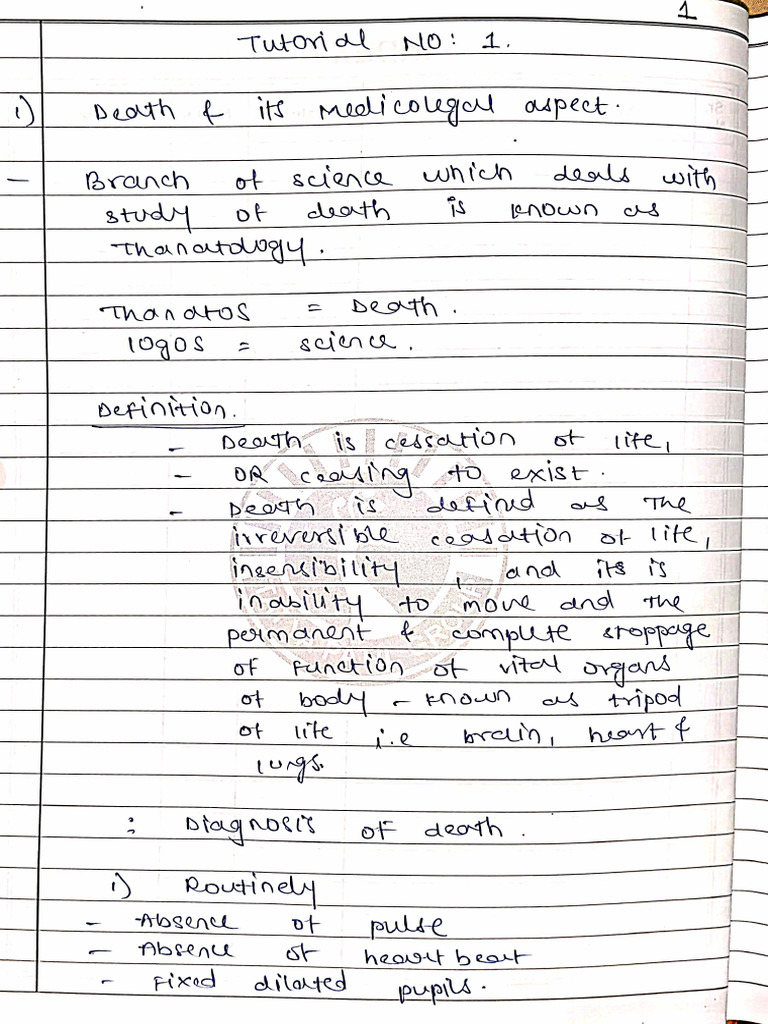 1
Tutorial NO: 1.
1) Death & its Medicolegal aspect.
- Branch of science which deals with
study of death is known as
Thanatology.
Thanatos = Death.
logos = science.
Definition.
- Death is cessation of life,
- OR ceasing to exist.
- Death is defined as the
irreversible ceasation of life,
insensibility, and its is
inability to move and the
permanent & complete stoppage
of function of vital organs
of body - known as tripod
of life i.e brain, heart &
lungs.
: Diagnosis of death.
1) Routinely
- Absence of pulse
- Absence of heart beart
- Fixed dilated pupils.